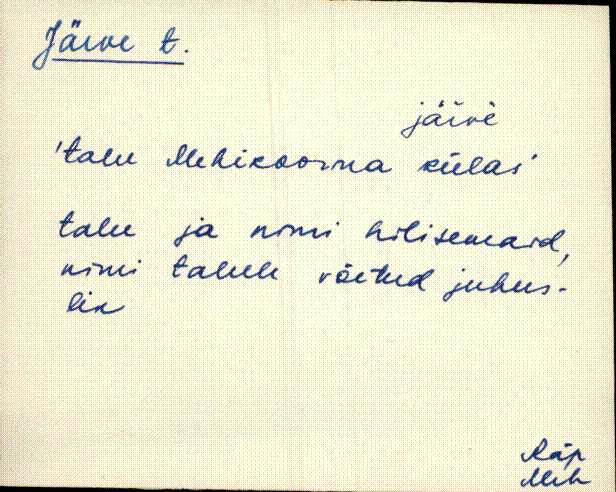 Järve t.
järve
'talu Mehikoorma külas'
talu ja nimi hilisemaid,
nimi talule võetud juhus-
lik
Räp
Meh